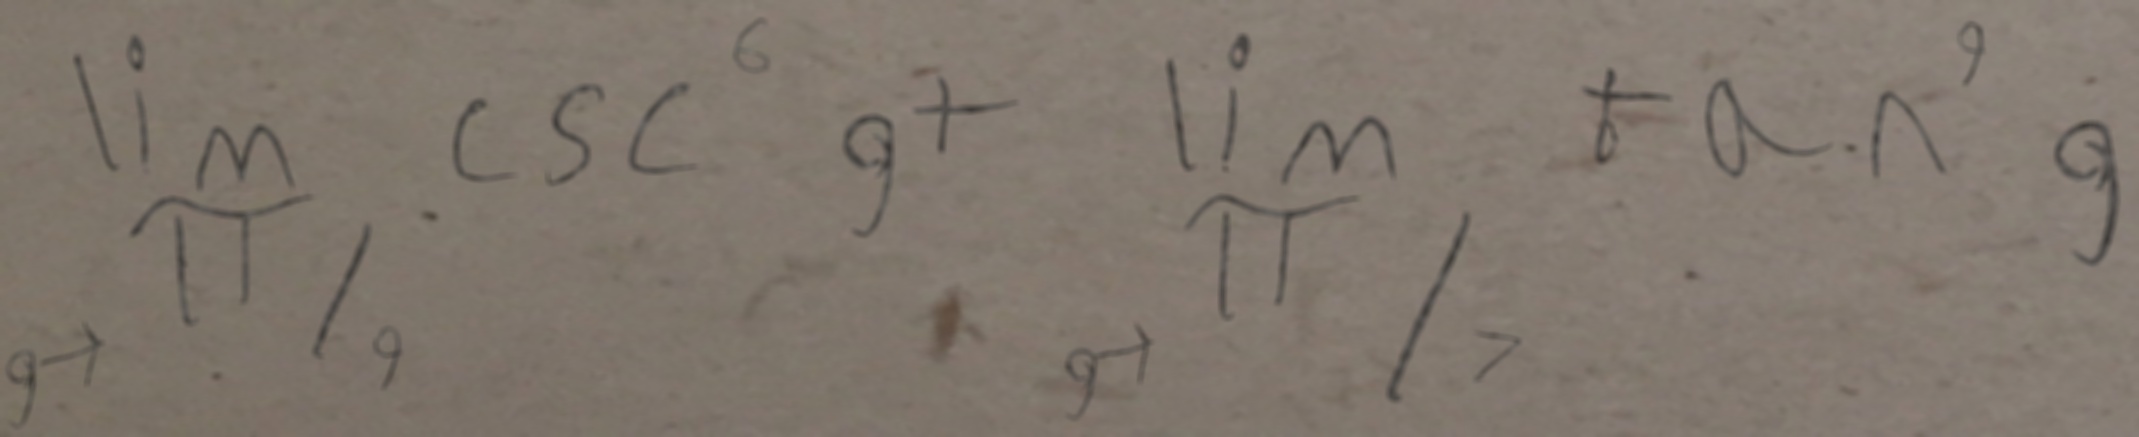 lim g→π/9 csc^6 g + lim g→π/7 tan^9 g